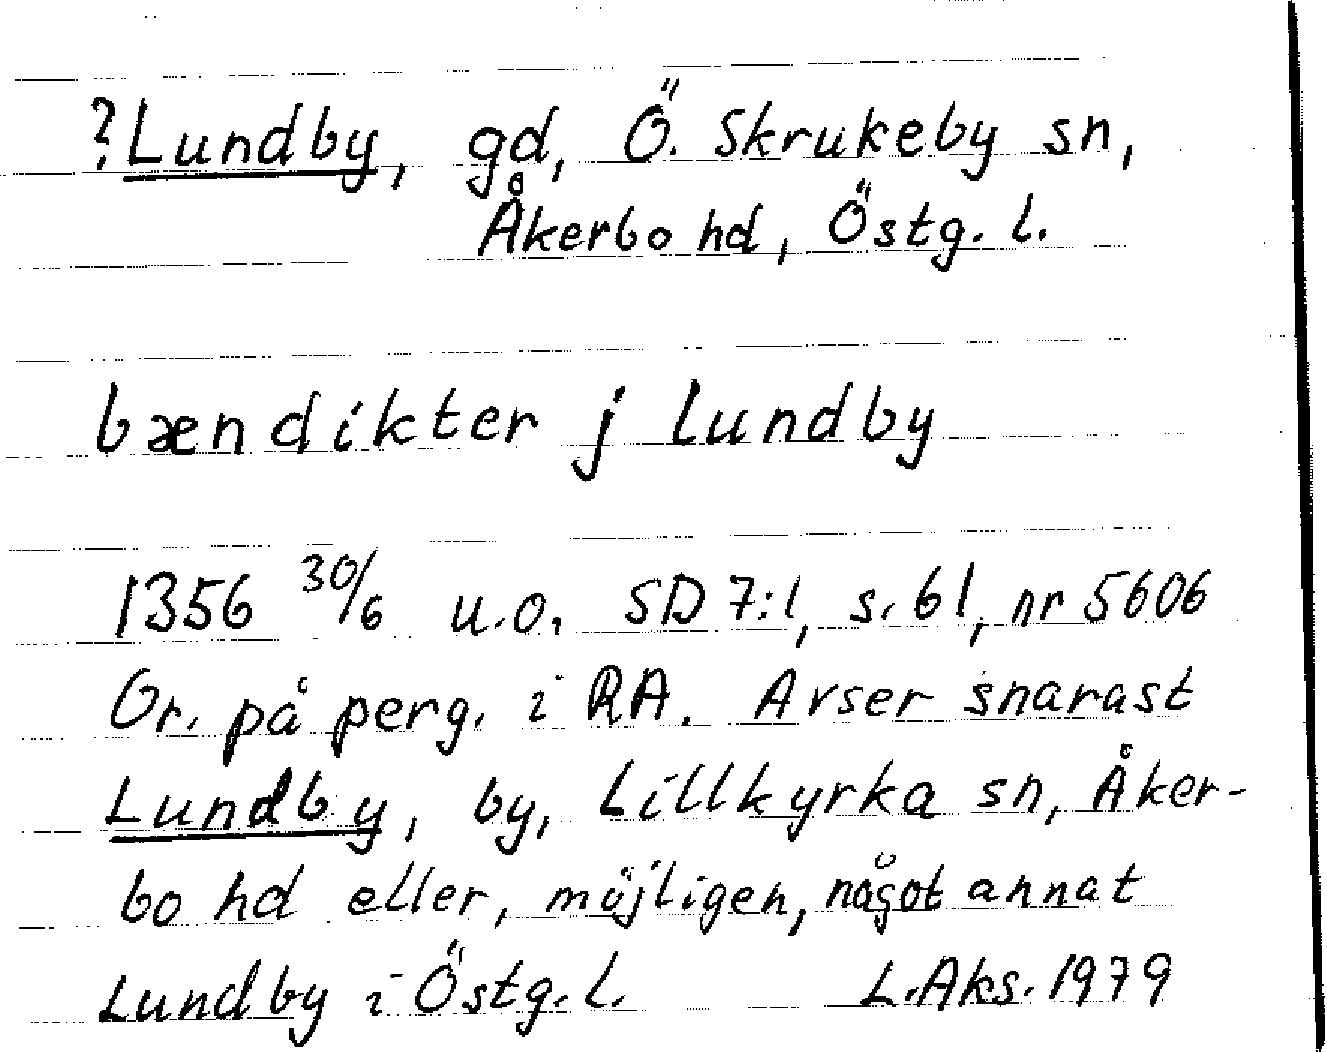 ?Lundby, gd, Ö. Skrukeby sn,
Åkerbo hd, Östg. l.
bændikter j lundby
1356 30/6 u.o. SD 7:1, s. 61, nr 5606
Or. på perg. i RA. Avser snarast
Lundby, by, Lillkyrka sn, Åker-
bo hd eller, möjligen, något annat
Lundby i Östg. l. L. Aks. 1979